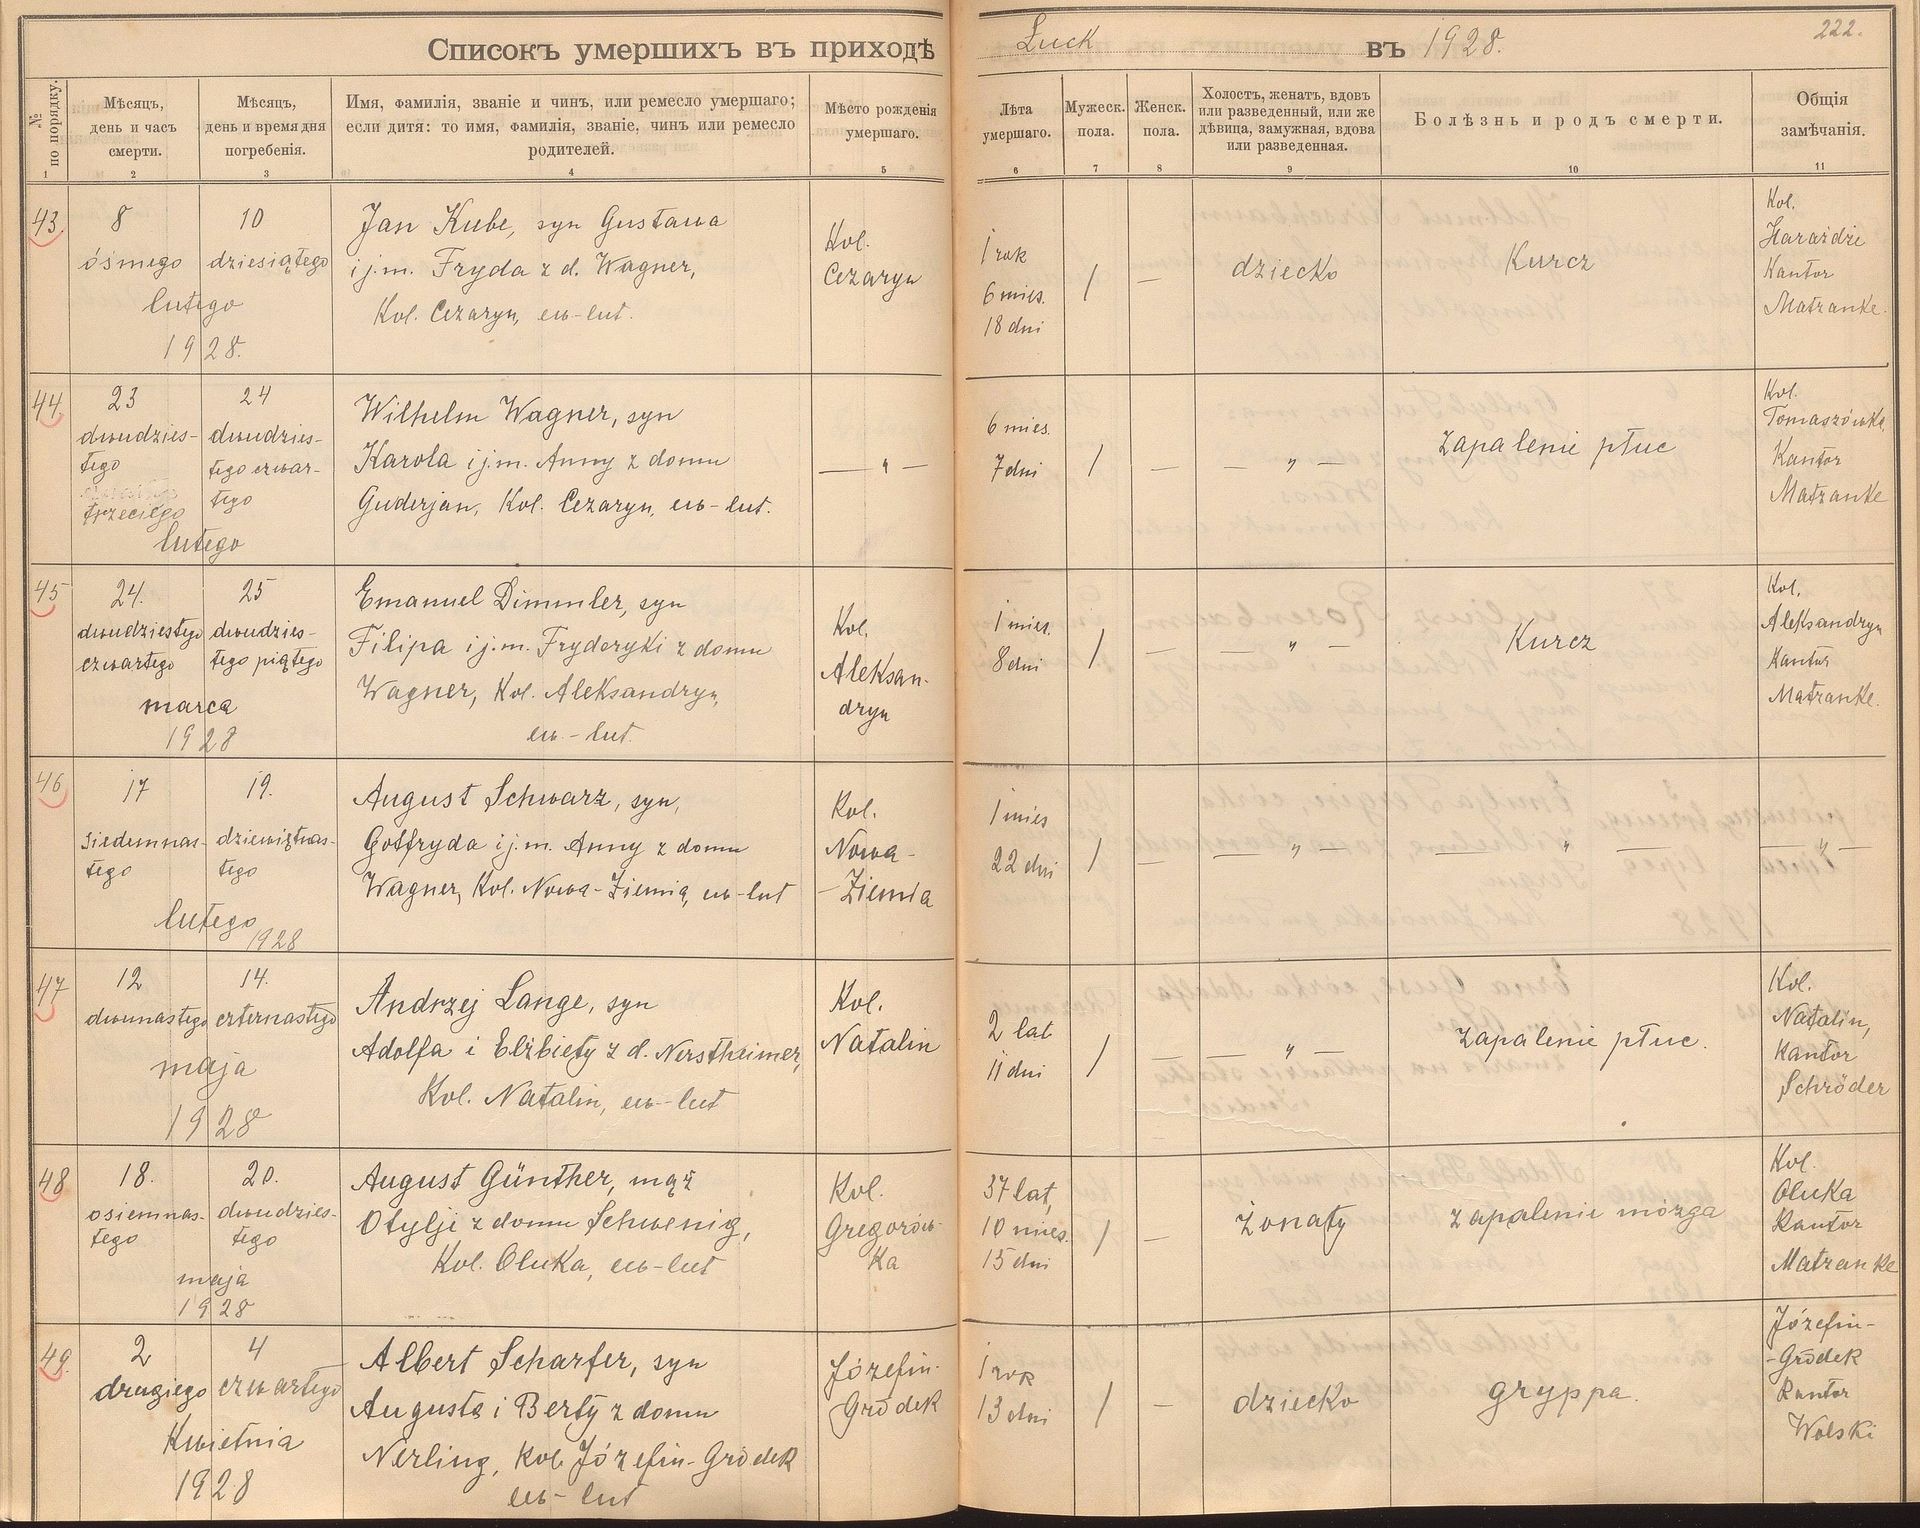 Списокъ умершихъ въ приходѣ Luck въ 1928.
222.
№ по порядку.
Мѣсяцъ,
день и часъ
смерти.
Мѣсяцъ,
день и время дня
погребенія.
Имя, фамилія, званіе и чинъ, или ремесло умершаго;
если дитя: то имя, фамилія, званіе, чинъ или ремесло
родителей.
Мѣсто рожденія
умершаго.
Лѣта
умершаго.
Мужеск.
пола.
Женск.
пола.
Холостъ, женатъ, вдовъ
или разведенный, или же
дѣвица, замужная, вдова
или разведенная.
Болѣзнь и родъ смерти.
Общія
замѣчанія.
1 2 3 4 5 6 7 8 9 10 11
43.
8
ósmego
10
dziesiątego
lutego
1928.
Jan Kube, syn Gustawa
i j.m. Fryda z d. Wagner,
Kol. Cezaryn, ew-lut.
Kol.
Cezaryn
1 rok
6 mies.
18 dni
/
—
dziecko
Kurcz
Kol.
Haraźdże
Kantor
Matzanke.
44.
23
dwudzies-
tego
trzeciego
24
dwudzies-
tego czwar-
tego
lutego
Wilhelm Wagner, syn
Karola i j.m. Anny z domu
Guderjan, Kol. Cezaryn, ew-lut.
— " —
6 mies.
7 dni
/
—
— " —
zapalenie płuc
Kol.
Tomaszówka
Kantor
Matzanke
45
24.
dwudziestego
czwartego
25
dwudzies-
tego piątego
marca
1928
Emanuel Dimmler, syn
Filipa i j.m. Fryderyki z domu
Wagner, Kol. Aleksandryn,
ew.-lut.
Kol.
Aleksan-
dryn
1 mies.
8 dni
/
—
— " —
Kurcz
Kol,
Aleksandryn
Kantor
Matzanke.
46
17
siedemnas-
tego
19.
dziewiętnas-
tego
lutego
1928
August Schwarz, syn,
Gotfryda i j.m. Anny z domu
Wagner, Kol. Nowa-Ziemia, ew-lut
Kol.
Nowa-
-Ziemia
1 mies
22 dni
/
—
— " —
— " —
— " —
47
12
dwunastego
14.
czternastego
maja
1928
Andrzej Lange, syn
Adolfa i Elżbiety z d. Nerstheimer,
Kol. Natalin, ew-lut
Kol.
Natalin
2 lat
11 dni
/
—
— " —
zapalenie płuc.
Kol.
Natalin,
Kantor
Schröder
48
18.
osiemnas-
tego
20.
dwudzies-
tego
maja
1928
August Günther, mąż
Otylji z domu Schwenig,
Kol. Oluka, ew-lut
Kol.
Gregorów-
ka
37 lat,
10 mies.
15 dni
/
—
żonaty
zapalenie mózga
Kol.
Oluka
Kantor
Matzanke
49.
2
drugiego
4
czwartego
Kwietnia
1928
Albert Scharfer, syn
Augusta i Berty z domu
Nerling, Kol. Józefin-Gródek
ew-lut
Józefin-
Gródek
1 rok
13 dni
/
—
dziecko
gryppa.
Józefin-
-Gródek
Kantor
Wolski